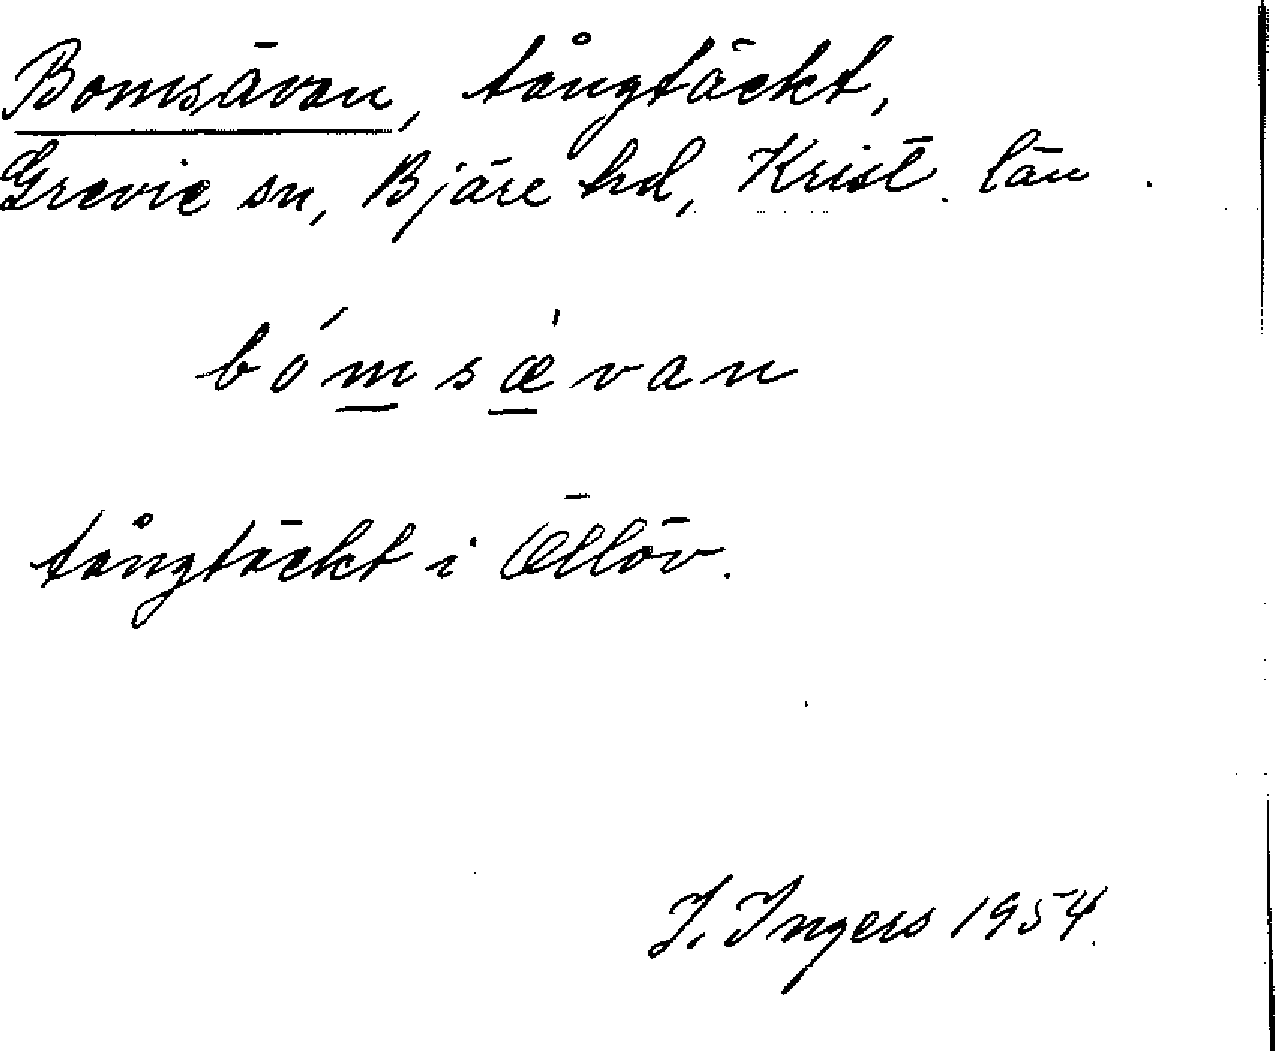 Bomsävan, tångtäckt,
Grevie sn, Bjäre hd, Krist. län.
bómsǽvan
tångtäckt i Öllöv.
I. Ingers 1954.